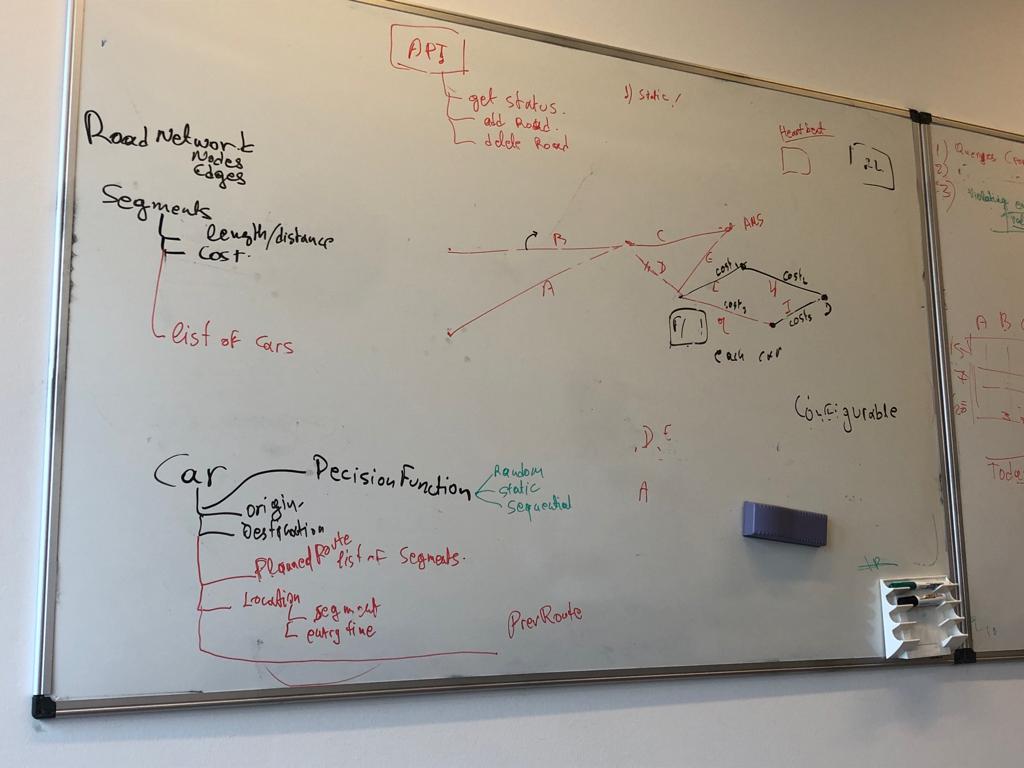 API
get status.
add Road.
delete Road
1) static!
Heartbeat
Road Network
Nodes
Edges
Segments
length/distance
Cost.
list of cars
B
A
C
D
E
AMS
cost
L
cost
H
cost
I
cost
D
each car
Configurable
D E
A
Car
Decision Function
Random
Static
Sequential
origin
Destination
Planned Route
list of Segments.
Location
segment
entry time
PrevRoute
1)
2)
3)
A B
Today